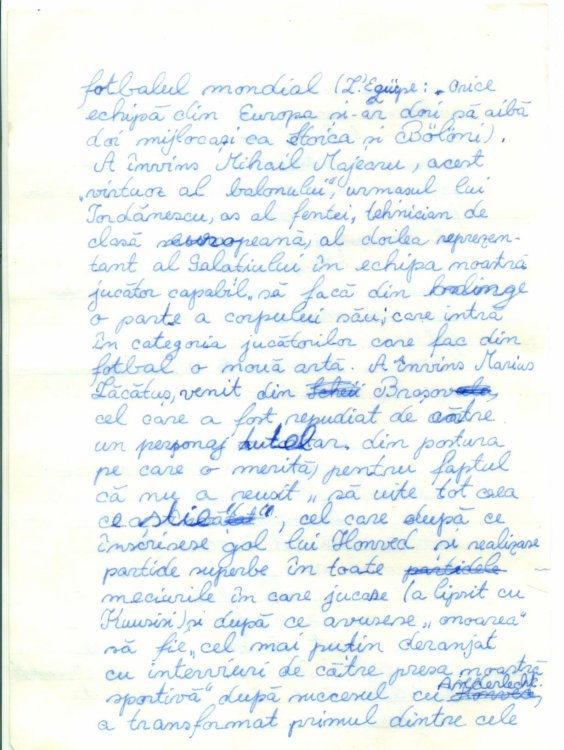 fotbalul mondial (L'Equipe: „orice
echipă din Europa și-ar dori să aibă
doi mijlocași ca Stoica și Bölöni).
A învins Mihail Majearu, acest
„virtuoz al balonului", urmasul lui
Iordănescu, as al fentei, tehnician de
clasă europeană, al doilea reprezen-
tant al Galațiului în echipa noastră
jucător capabil „să facă din minge
o parte a corpului său; care intră
în categoria jucătorilor care fac din
fotbal o nouă artă. A învins Marius
Lăcătuș, venit din Scheii Brașov,
cel care a fost repudiat de către
un personaj din postura
pe care o merită, pentru faptul
că nu a reușit „să uite tot ceea
ce știe", cel care după ce
înscrisese gol lui Honved și realizase
partide superbe în toate partidele
meciurile în care jucase (a lipsit cu
Kuusisi) și după ce avusese „onoarea"
să fie „cel mai puțin deranjat
cu interviuri de către presa noastră
sportivă" după succesul cu Anderlecht. Honved,
a transformat primul dintre cele